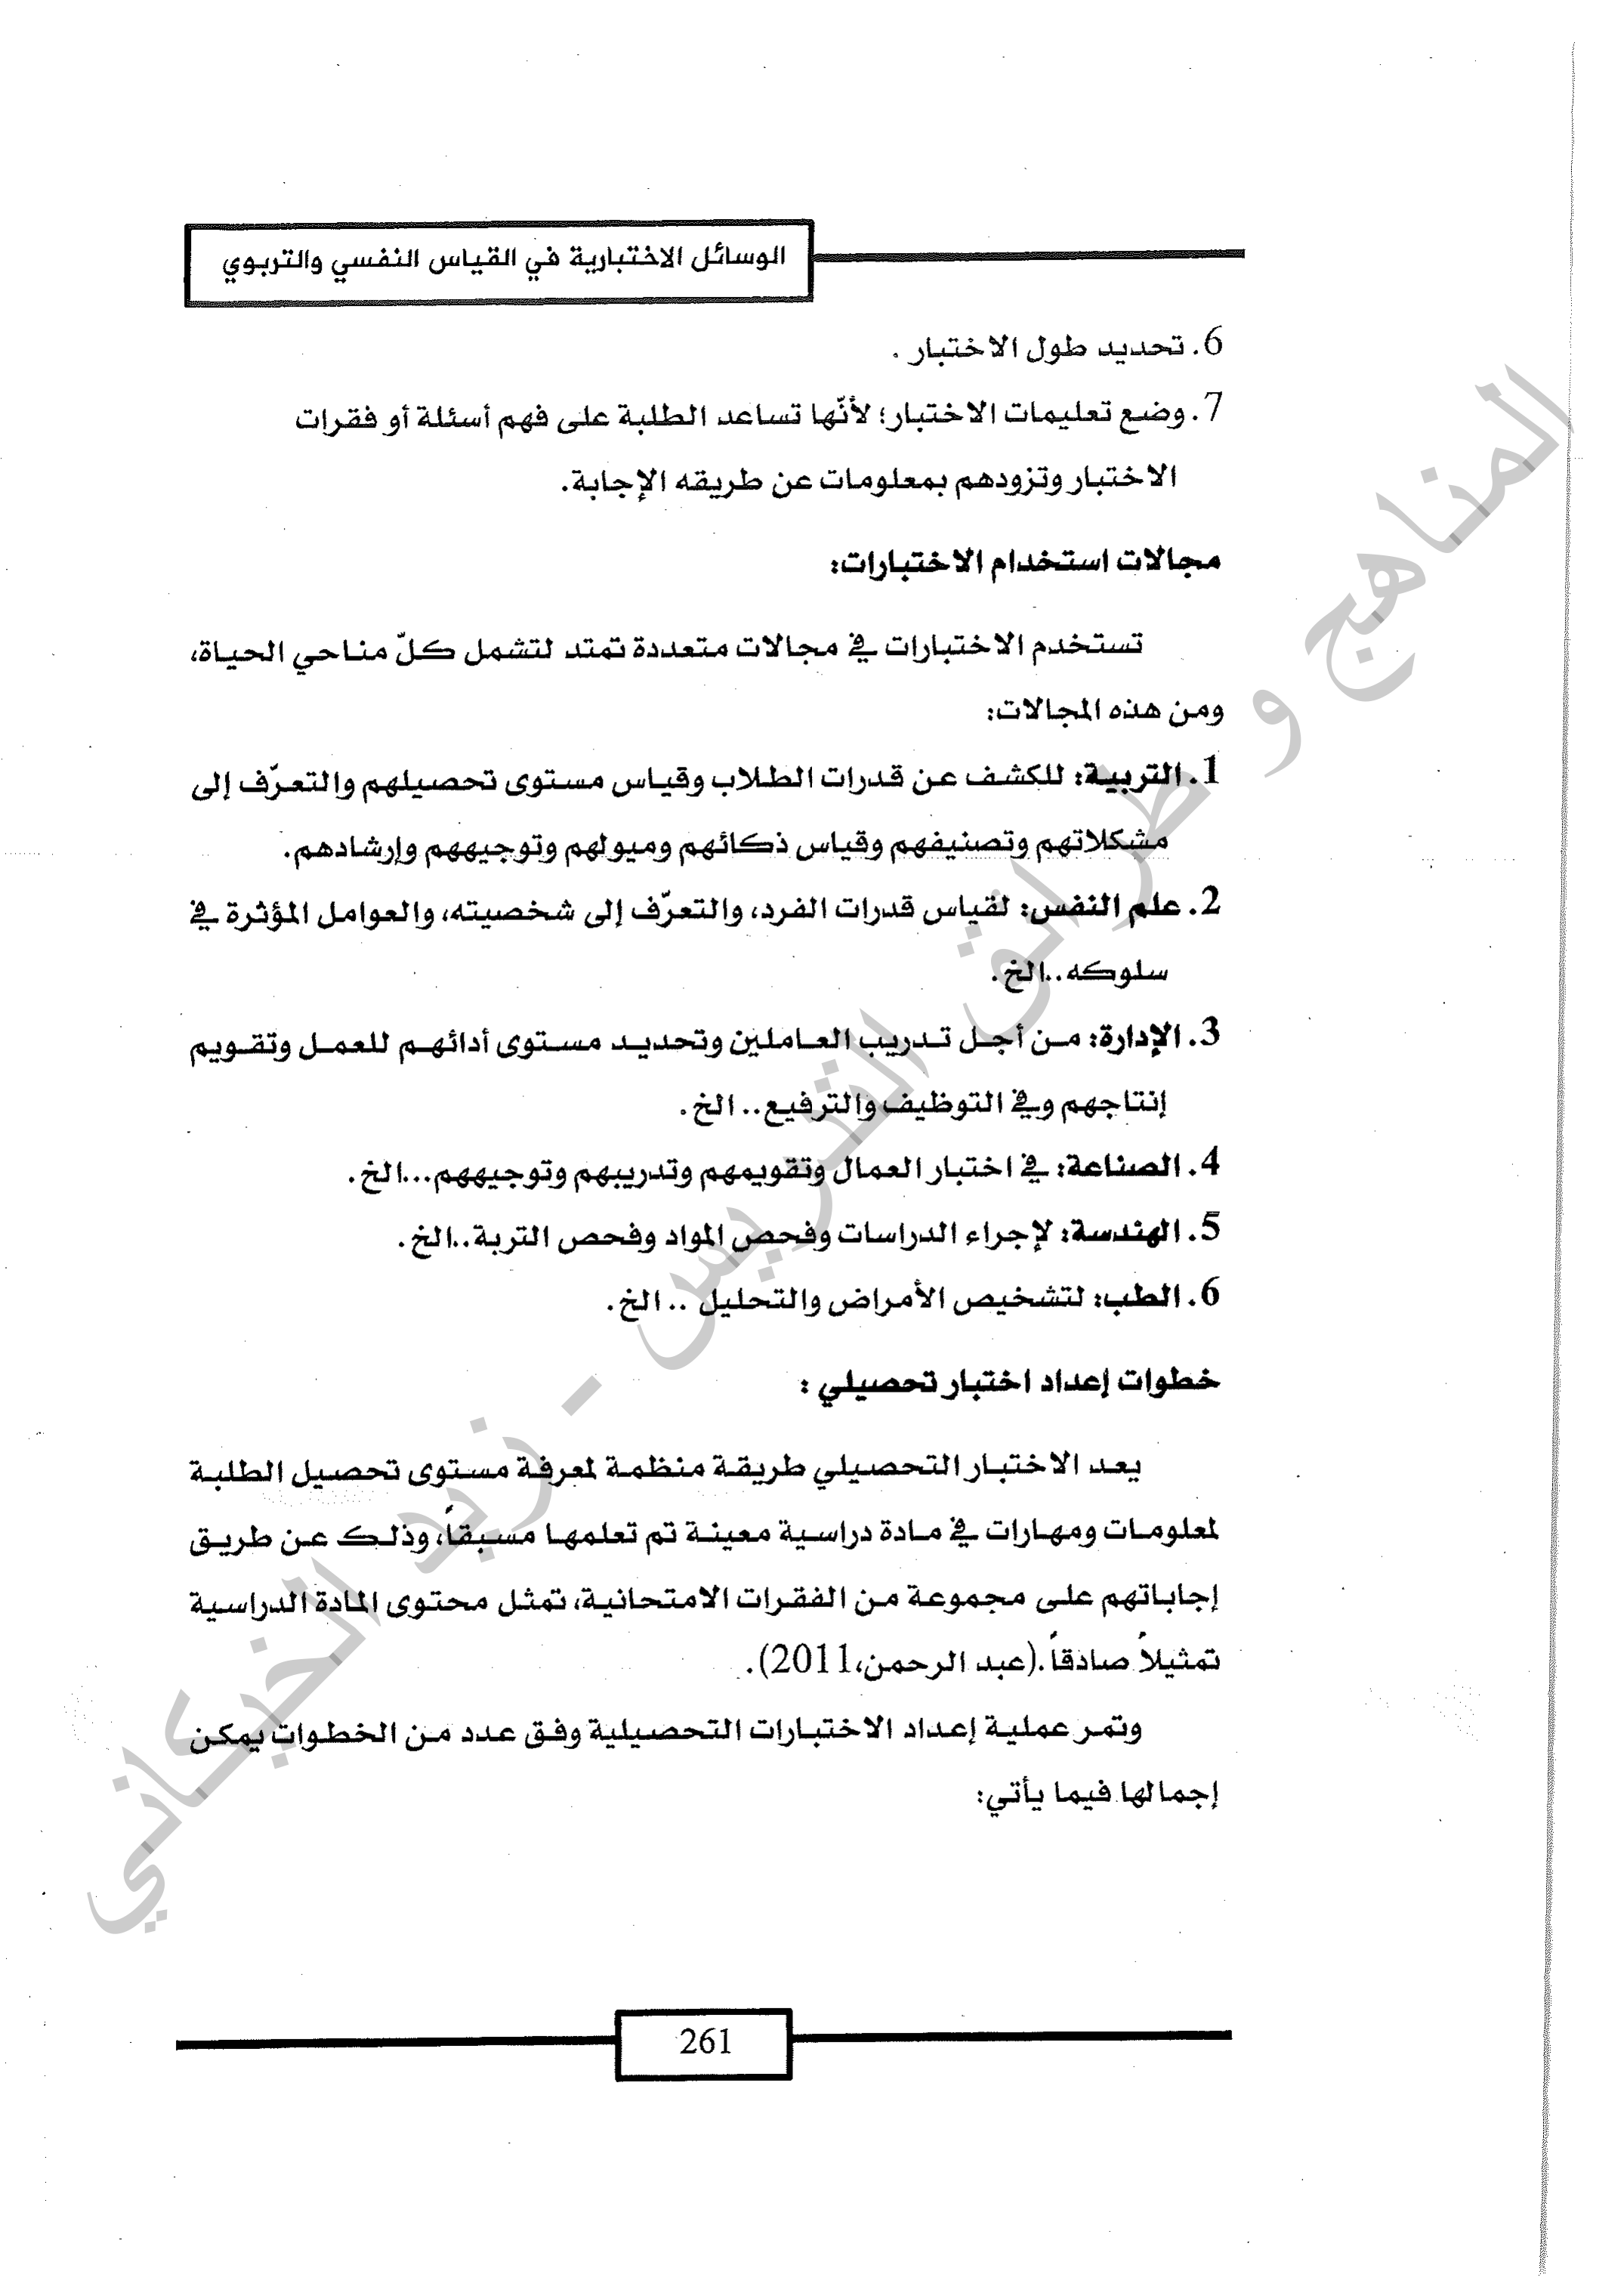 الوسائل الاختبارية في القياس النفسي والتربوي
6. تحديد طول الاختبار .
7. وضع تعليمات الاختبار؛ لأنّها تساعد الطلبة على فهم أسئلة أو فقرات
الاختبار وتزودهم بمعلومات عن طريقه الإجابة.
مجالات استخدام الاختبارات:
تستخدم الاختبارات في مجالات متعددة تمتد لتشمل كلّ مناحي الحياة،
ومن هذه المجالات:
1. التربية: للكشف عن قدرات الطلاب وقياس مستوى تحصيلهم والتعرّف إلى
مشكلاتهم وتصنيفهم وقياس ذكائهم وميولهم وتوجيههم وإرشادهم.
2. علم النفس: لقياس قدرات الفرد، والتعرّف إلى شخصيته، والعوامل المؤثرة في
سلوكه..الخ.
3. الإدارة: من أجل تدريب العاملين وتحديد مستوى أدائهم للعمل وتقويم
إنتاجهم وفي التوظيف والترفيع.. الخ.
4. الصناعة: في اختبار العمال وتقويمهم وتدريبهم وتوجيههم...الخ.
5. الهندسة: لإجراء الدراسات وفحص المواد وفحص التربة..الخ.
6. الطب: لتشخيص الأمراض والتحليل .. الخ.
خطوات إعداد اختبار تحصيلي :
يعد الاختبار التحصيلي طريقة منظمة لمعرفة مستوى تحصيل الطلبة
لمعلومات ومهارات في مادة دراسية معينة تم تعلمها مسبقاً، وذلك عن طريق
إجاباتهم على مجموعة من الفقرات الامتحانية، تمثل محتوى المادة الدراسية
تمثيلاً صادقاً.(عبد الرحمن،2011).
وتمر عملية إعداد الاختبارات التحصيلية وفق عدد من الخطوات يمكن
إجمالها فيما يأتي:
261
المناهج و طرائق التدريس - زيد الخيكاني